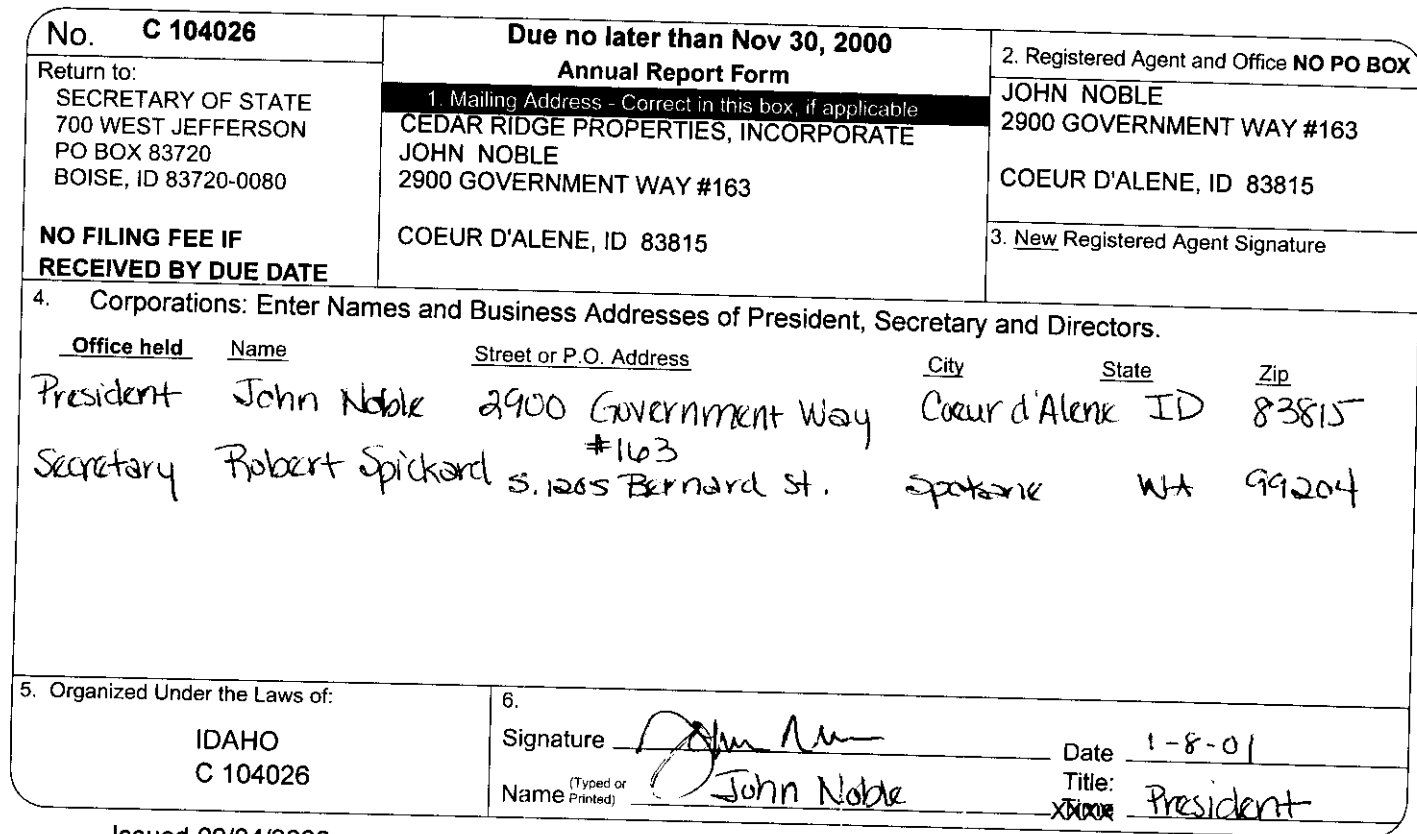 No. C 104026
Return to:
SECRETARY OF STATE
700 WEST JEFFERSON
PO BOX 83720
BOISE, ID 83720-0080
NO FILING FEE IF
RECEIVED BY DUE DATE
Due no later than Nov 30, 2000
Annual Report Form
1. Mailing Address - Correct in this box, if applicable
CEDAR RIDGE PROPERTIES, INCORPORATE
JOHN NOBLE
2900 GOVERNMENT WAY #163
COEUR D'ALENE, ID 83815
2. Registered Agent and Office NO PO BOX
JOHN NOBLE
2900 GOVERNMENT WAY #163
COEUR D'ALENE, ID 83815
3. New Registered Agent Signature
4. Corporations: Enter Names and Business Addresses of President, Secretary and Directors.
Office held Name Street or P.O. Address City State Zip
President John Noble 2900 Government Way Coeur d'Alene ID 83815
#163
Secretary Robert Spickard S. 1205 Bernard St. Spokane WA 99204
5. Organized Under the Laws of:
IDAHO
C 104026
6.
Signature Date 1-8-01
Name (Typed or Printed) John Noble Title: President